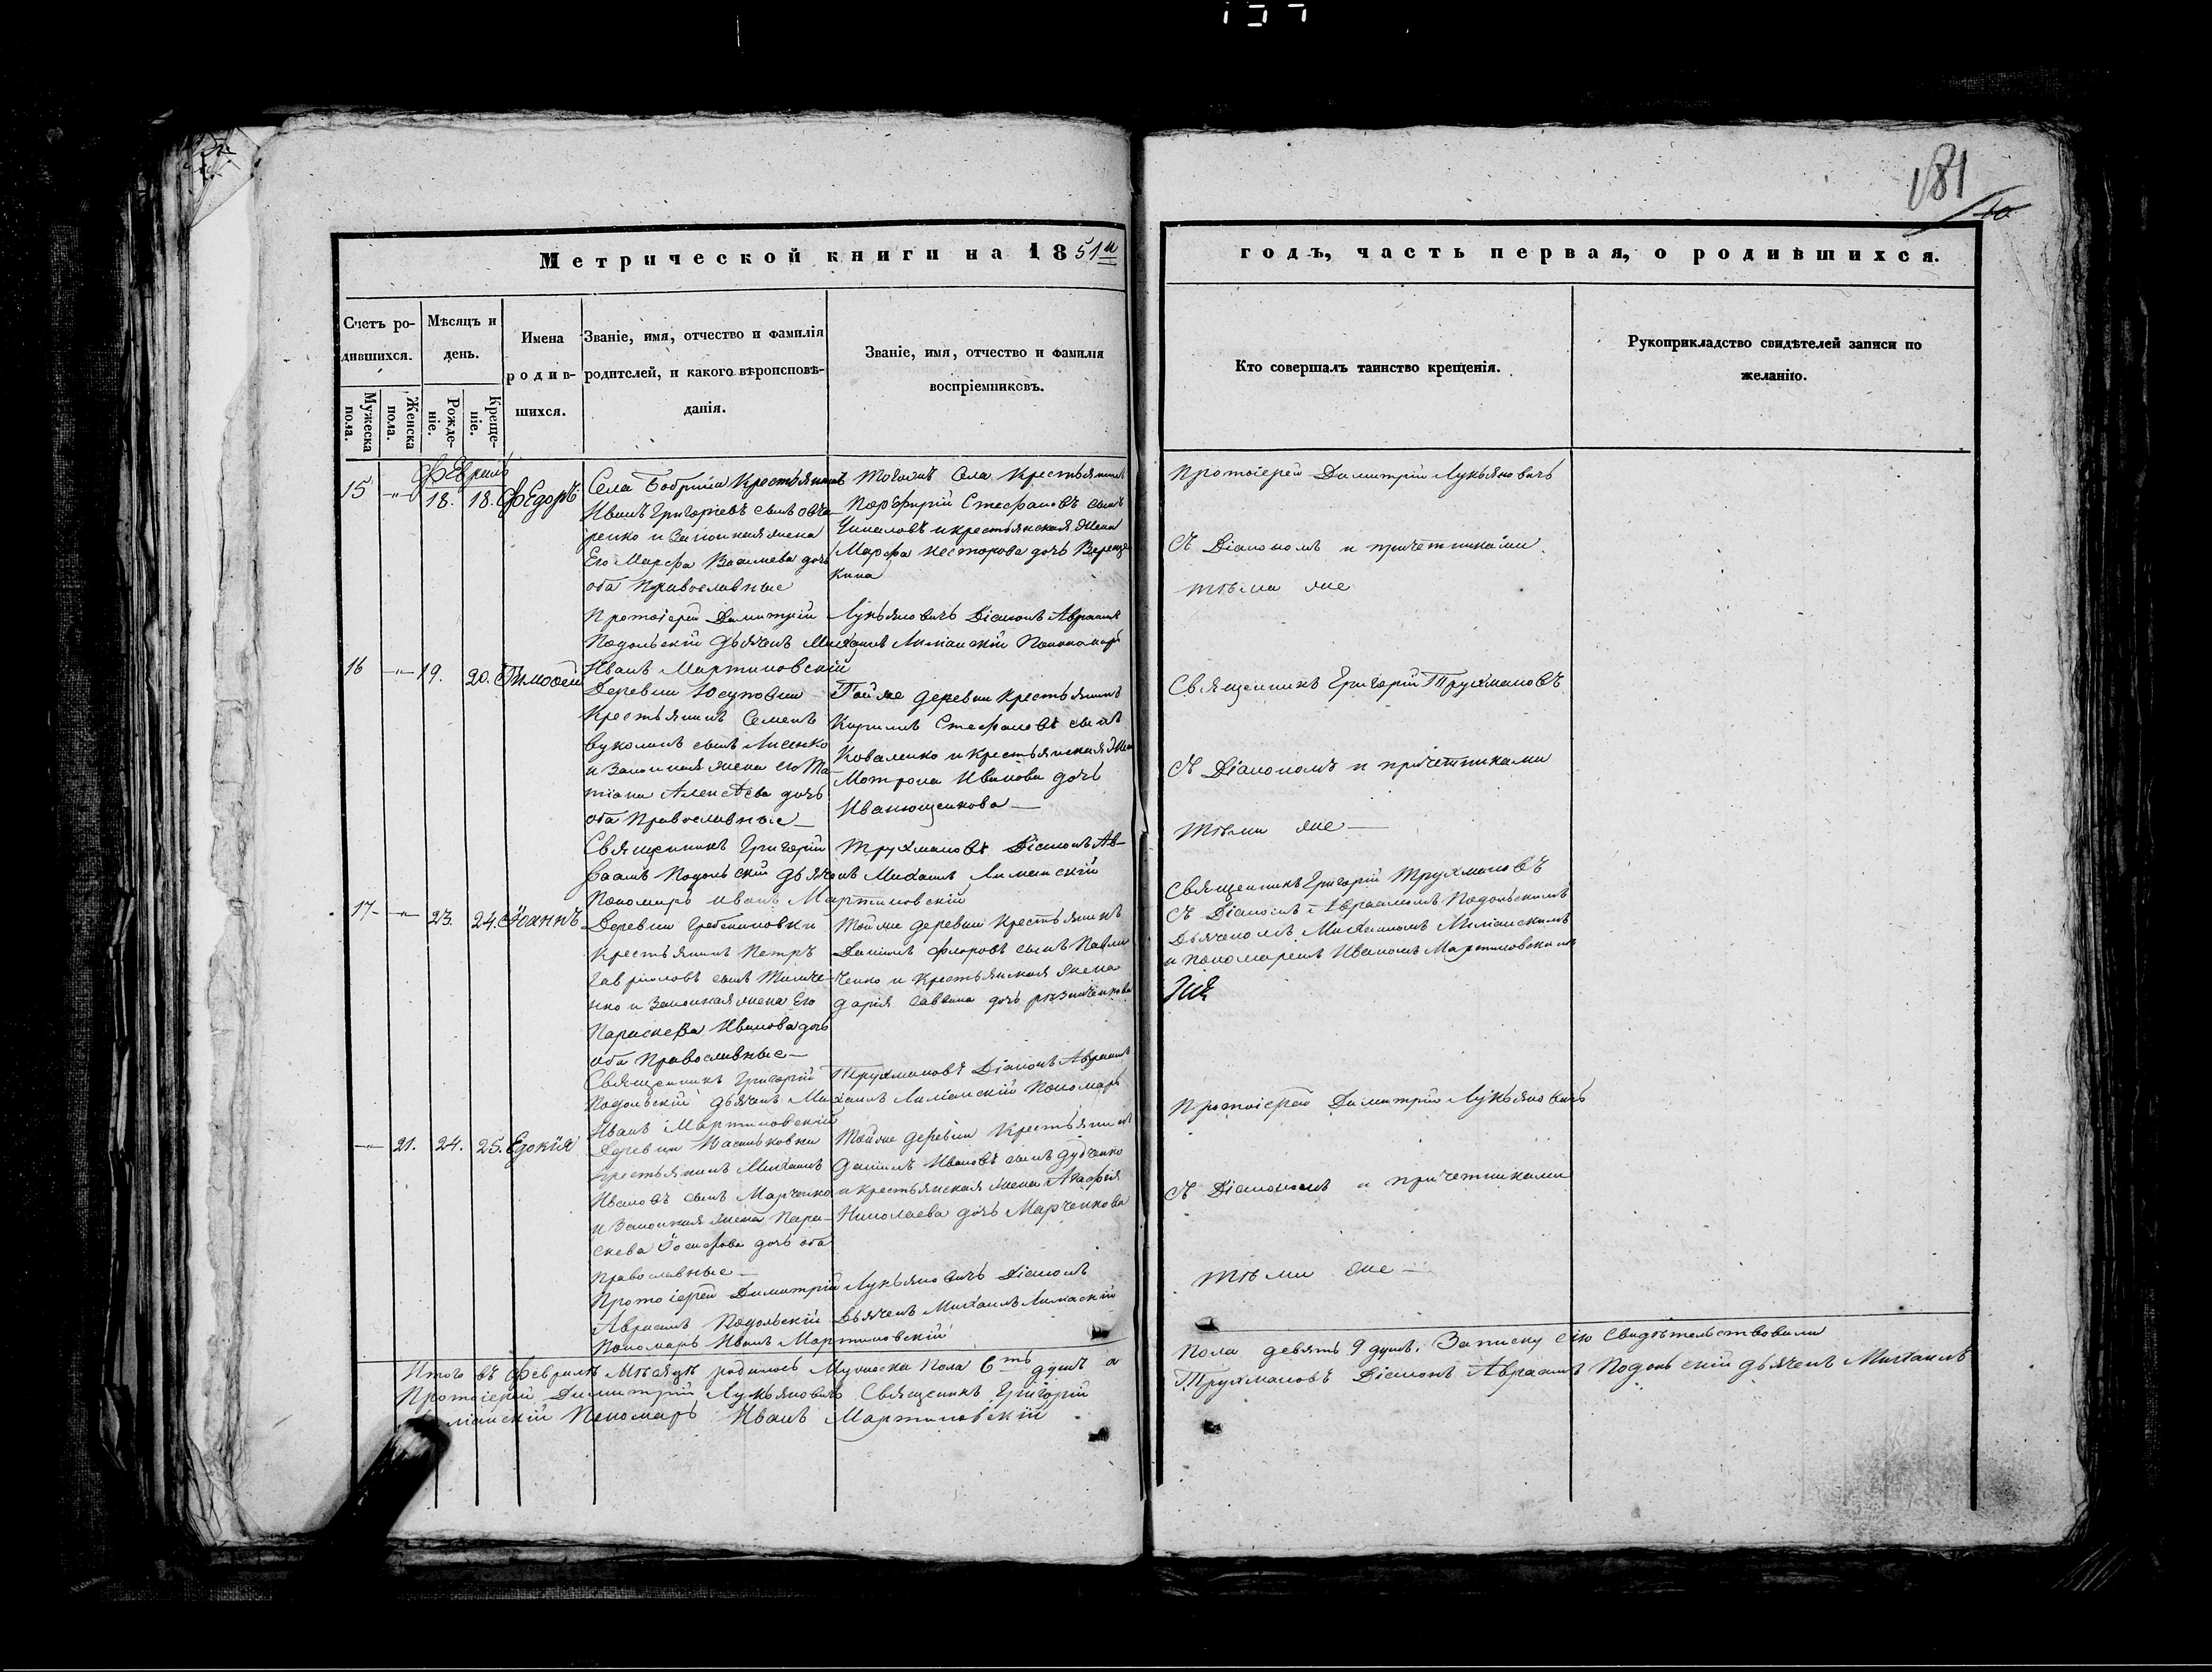 181
10
Метрической книги на 1851й
годъ, часть первая, о родившихся.
Счетъ ро-
дившихся.
Мужеска пола.
Женска пола.
Мѣсяцъ и
день.
Рожде-
ніе.
Креще-
ніе.
Имена
родив-
шихся.
Званіе, имя, отчество и фамилія
родителей, и какого вѣроисповѣ-
данія.
Званіе, имя, отчество и фамилія
воспріемниковъ.
Кто совершалъ таинство крещенія.
Рукоприкладство свидѣтелей записи по
желанію.
Февраль
15 18. 18. Федоръ
Села Бобрика Крестьянинъ
Иванъ Григоріевъ сынъ Овча-
ренко и Законная жена
Его Марфа Василіева дочь
оба Православные
Тогожъ Села Крестьянинъ
Порфирій Стефановъ сынъ
и крестьянская жена
Марфа Несторова дочь
кина
Протоіерей Димитрій Лукьяновичь
Съ Діакономъ и причетниками
тѣми же
Протоіерей Димитрій Лукьяновичь Діаконъ Авраамъ
Подольскій дьячекъ Михаилъ Лиманскій Пономарь
Иванъ Мартиновскій
16 19. 20. Тимофей
Деревни Юсуповки
Крестьянинъ Семенъ
Вуколовъ сынъ Лисенко
и Законная жена его Та-
тіана Алексѣева дочь
оба Православные
Той же деревни Крестьянинъ
Кирилъ Стефановъ сынъ
Коваленко и крестьянская жена
Мотрона Иванова дочь
Иванющенкова
Священникъ Григорій Трухмановъ
Съ Діакономъ и причетниками
тѣми же
Священникъ Григорій Трухмановъ Діаконъ Ав-
раамъ Подольскій дьячекъ Михаилъ Лиманскій
Пономарь Иванъ Мартиновскій
17 23. 24. Іоаннъ
Деревни Гребениковки
Крестьянинъ Петръ
Гавриловъ сынъ
нко и Законная жена Его
Параскева Иванова дочь
оба Православные
Той же деревни Крестьянинъ
Даніилъ Флоровъ сынъ Павли-
ченко и Крестьянская жена
Дарія Саввина дочь
Священникъ Григорій Трухмановъ
Съ Діакономъ Авраамомъ Подольскимъ
Дьячкомъ Михаиломъ Лиманскимъ
и пономаремъ Иваномъ Мартиновскимъ
Священникъ Григорій Трухмановъ Діаконъ Авраамъ
Подольскій дьячекъ Михаилъ Лиманскій Пономарь
Иванъ Мартиновскій
21. 24. 25. Едокія
Деревни Васильковки
Крестьянинъ Михаилъ
Ивановъ сынъ Марченко
и Законная жена Пара-
скева Іосифова дочь оба
Православные
Той же деревни Крестьянинъ
Даніилъ Ивановъ сынъ Дудченко
и крестьянская жена Агафія
Николаева дочь Марченкова
Протоіерей Димитрій Лукьяновичь
Съ Діакономъ и причетниками
тѣми же
Протоіерей Димитрій Лукьяновичь Діаконъ
Авраамъ Подольскій Дьячекъ Михаилъ Лиманскій
Пономарь Иванъ Мартиновскій
Итого въ Февралѣ Мѣсяцѣ родилось Мужеска Пола 6ть душъ а
Пола девять 9 душъ. Записку сію Свидѣтельствовали
Протоіерей Димитрій Лукьяновичь Священикъ Григорій
Трухмановъ Діаконъ Авраамъ Подольскій дьячекъ Михаилъ
манскій Пономарь Иванъ Мартиновскій